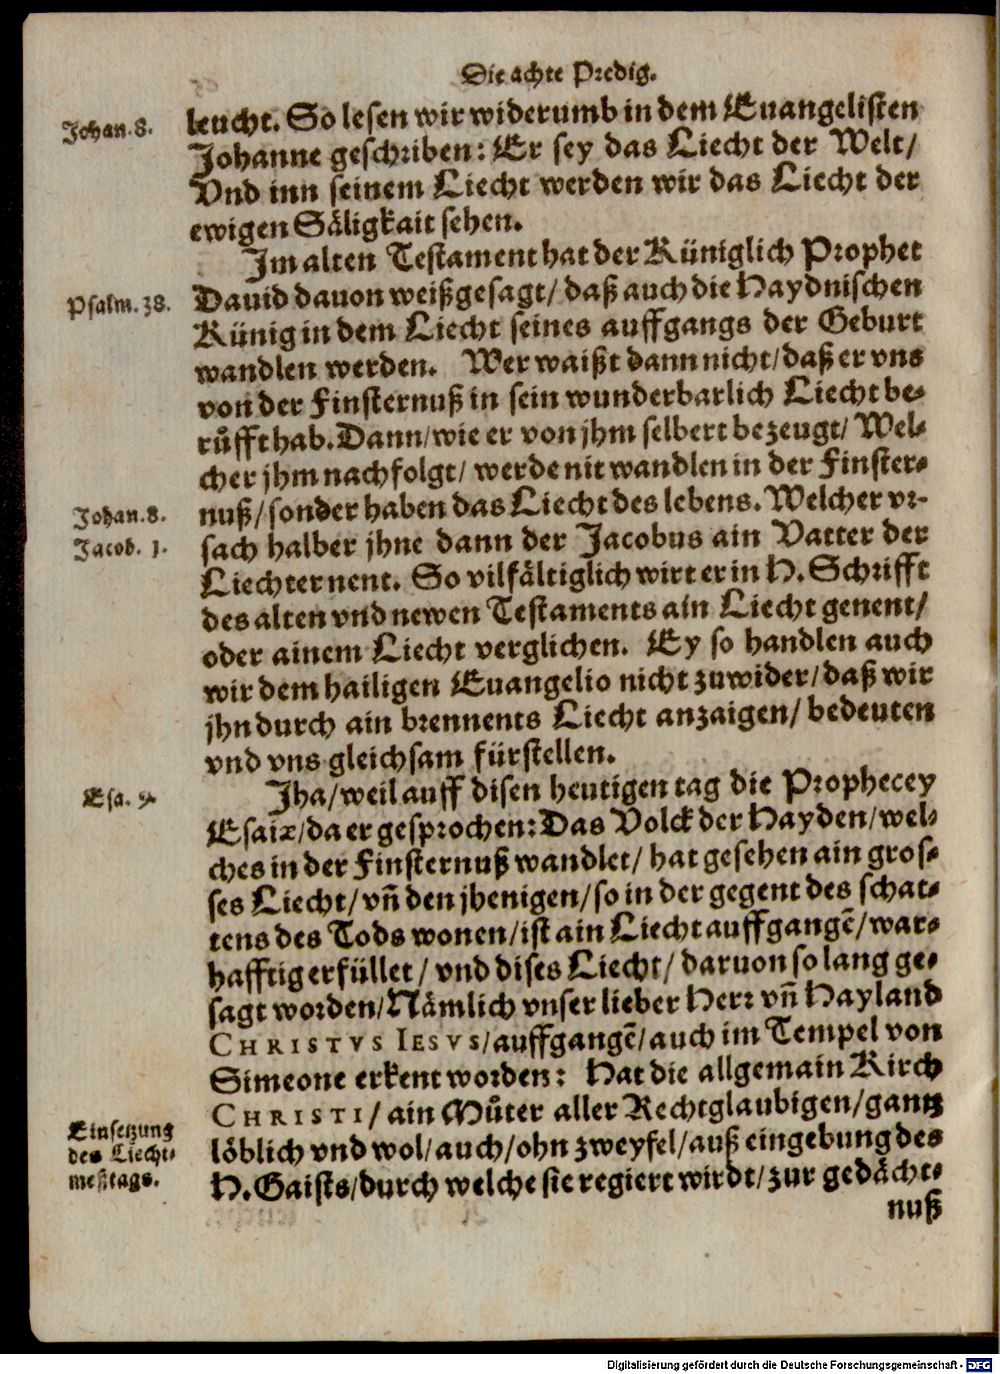 Die achte Predig.
Johan. 8.
leucht. So lesen wir widerumb in dem Euangelisten
Johanne geschriben: Er sey das Liecht der Welt/
Vnd inn seinem Liecht werden wir das Liecht der
ewigen Säligkait sehen.
Im alten Testament hat der Küniglich Prophet
Psalm. 38.
Dauid dauon weißgesagt/ daß auch die Haydnischen
Künig in dem Liecht seines auffgangs der Geburt
wandlen werden. Wer waißt dann nicht/ daß er vns
von der Finsternuß in sein wunderbarlich Liecht be-
růfft hab. Dann/ wie er von jhm selbert bezeugt/ Wel-
cher jhm nachfolgt/ werde nit wandlen in der Finster-
Johan. 8.
nuß/ sonder haben das Liecht des lebens. Welcher vr-
Jacob. 1.
sach halber jhne dann der Jacobus ain Vatter der
Liechter nent. So vilfältiglich wirt er in H. Schrifft
des alten vnd newen Testaments ain Liecht genent/
oder ainem Liecht verglichen. Ey so handlen auch
wir dem hailigen Euangelio nicht zuwider/ daß wir
jhn durch ain brennents Liecht anzaigen/ bedeuten
vnd vns gleichsam fürstellen.
Jha/ weil auff disen heutigen tag die Prophecey
Esa. 9.
Esaiæ/ da er gesprochen: Das Volck der Hayden/ wel-
ches in der Finsternuß wandlet/ hat gesehen ain gros-
ses Liecht/ vñ den jhenigen/ so in der gegent des schat-
tens des Tods wonen/ ist ain Liecht auffgangẽ/ war-
hafftig erfüllet/ vnd dises Liecht/ daruon so lang ge-
sagt worden/ Nämlich vnser lieber Herr vñ Hayland
CHRISTVS IESVS/ auffgangẽ/ auch im Tempel von
Simeone erkent worden: Hat die allgemain Kirch
CHRISTI/ ain Můter aller Rechtglaubigen/ gantz
Einsetzung
des Liecht-
meßtags.
löblich vnd wol/ auch/ ohn zweyfel/ auß eingebung des
H. Gaists/ durch welche sie regiert wirdt/ zur gedächt-
nuß
Digitalisierung gefördert durch die Deutsche Forschungsgemeinschaft - DFG